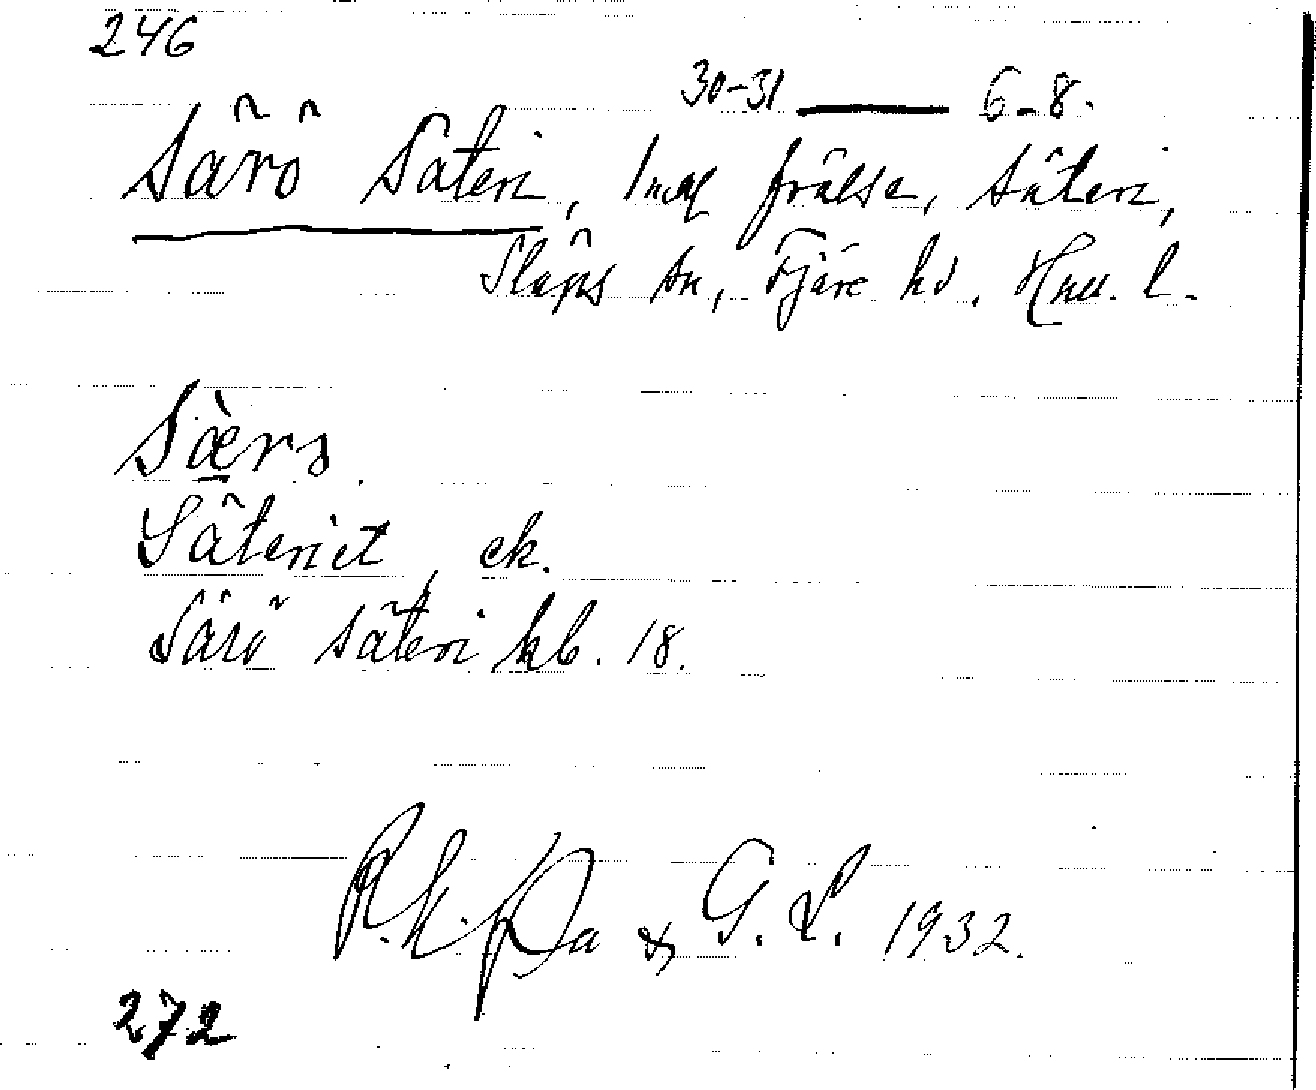 246
30-31 — 6-8.
Särö Säteri, 1 mtl frälse, säteri,
Släps sn, Fjäre hd. Hall. l.
Sæ̀rs
Säteriet, ek.
Särö säteri kb. 18.
& G. L. 1932.
272